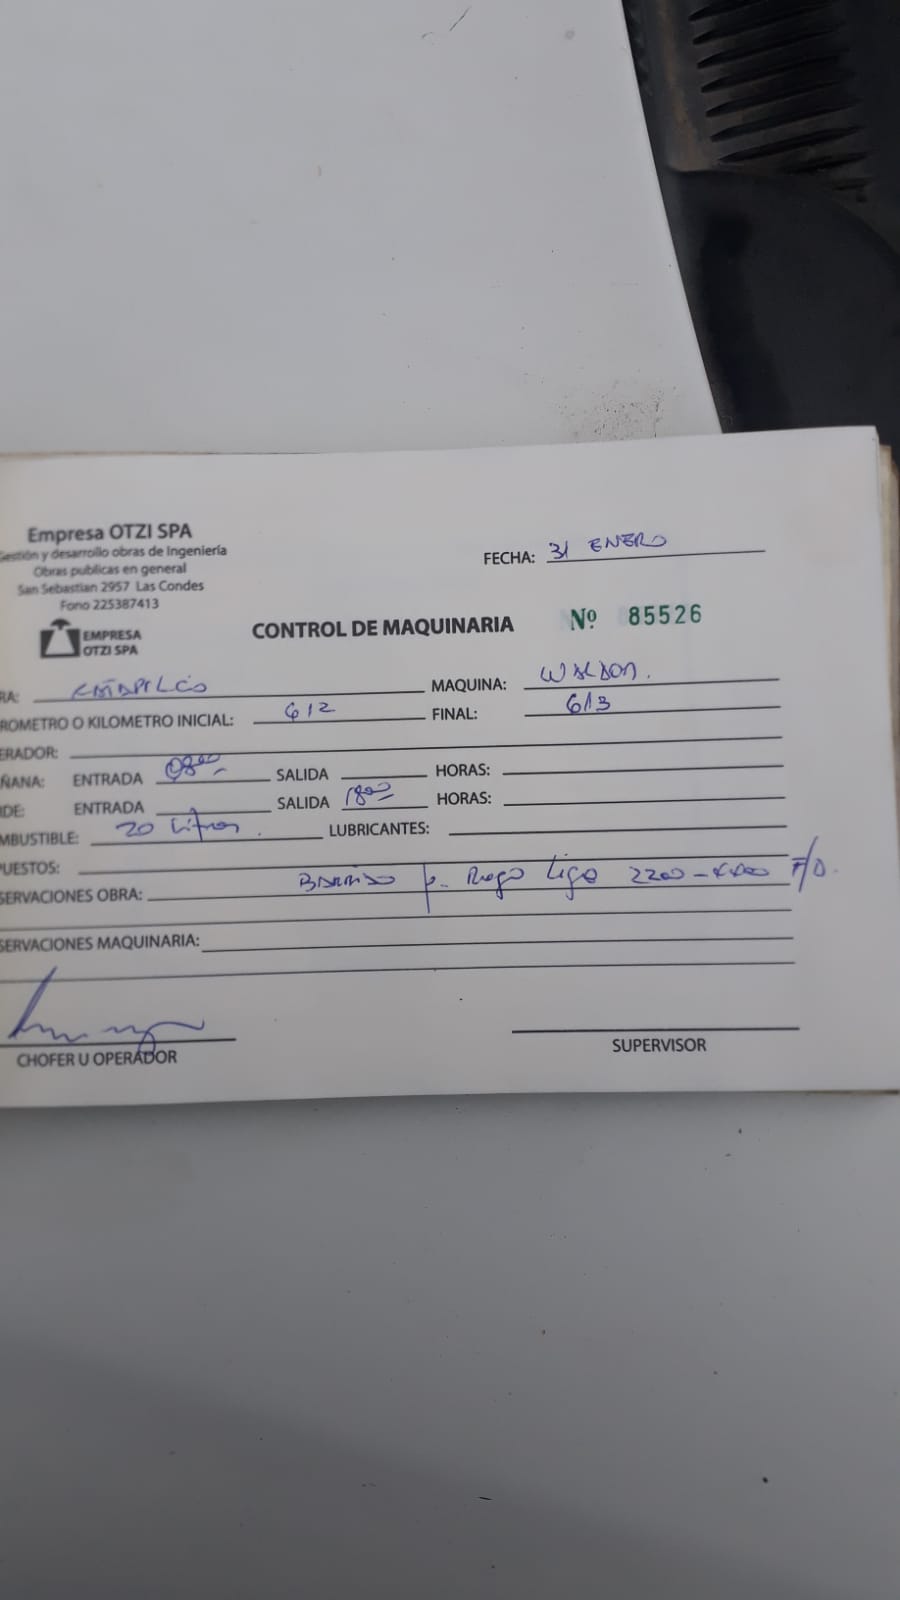 Empresa OTZI SPA
Gestión y desarrollo obras de Ingeniería
Obras publicas en general
San Sebastian 2957 Las Condes
Fono 225387413
EMPRESA
OTZI SPA
FECHA: 31 ENERO
CONTROL DE MAQUINARIA Nº 85526
RA: CATAPILCO MAQUINA: WALDON.
ROMETRO O KILOMETRO INICIAL: 612 FINAL: 613
ERADOR:
ÑANA: ENTRADA 0800 SALIDA HORAS:
DE: ENTRADA SALIDA 1800 HORAS:
MBUSTIBLE: 20 Litros. LUBRICANTES:
PUESTOS:
SERVACIONES OBRA: BARRIDO p. Riego Liga 2200 - F/D.
SERVACIONES MAQUINARIA:
CHOFER U OPERADOR
SUPERVISOR